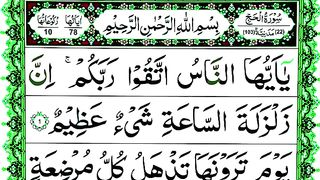 سُورَةُ الْحَجِّ
بِسْمِ اللهِ الرَّحْمٰنِ الرَّحِيْمِ
اٰيَاتُهَا 78
رُكُوْعَاتُهَا 10
يٰۤاَيُّهَا النَّاسُ اتَّقُوْا رَبَّكُمْ ۚ اِنَّ
زَلْزَلَةَ السَّاعَةِ شَيْءٌ عَظِيْمٌ ﴿۱﴾
يَوْمَ تَرَوْنَهَا تَذْهَلُ كُلُّ مُرْضِعَةٍ